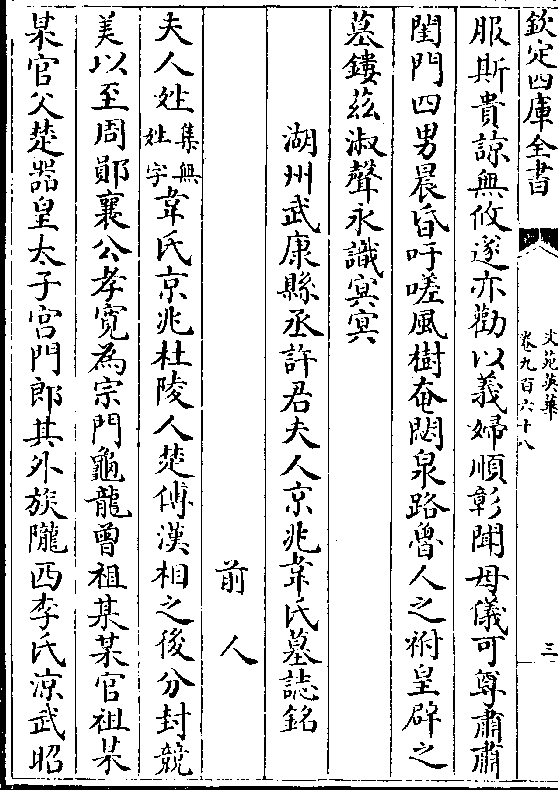 欽定四庫全書
文苑英華
卷九百六十八
三
服斯貴諒無攸遂亦勸以義婦順彰聞母儀可尊肅肅
閨門四男晨昏吁嗟風樹奄閟泉路魯人之祔皇辟之
墓鏤茲淑聲永識冥冥
湖州武康縣丞許君夫人京兆韋氏墓誌銘
前人
夫人姓集無姓字韋氏京兆杜陵人楚傅漢相之後分封競
美以至周鄖襄公孝寬為宗門龜龍曾祖某某官祖某
某官父楚器皇太子宮門郎其外族隴西李氏涼武昭